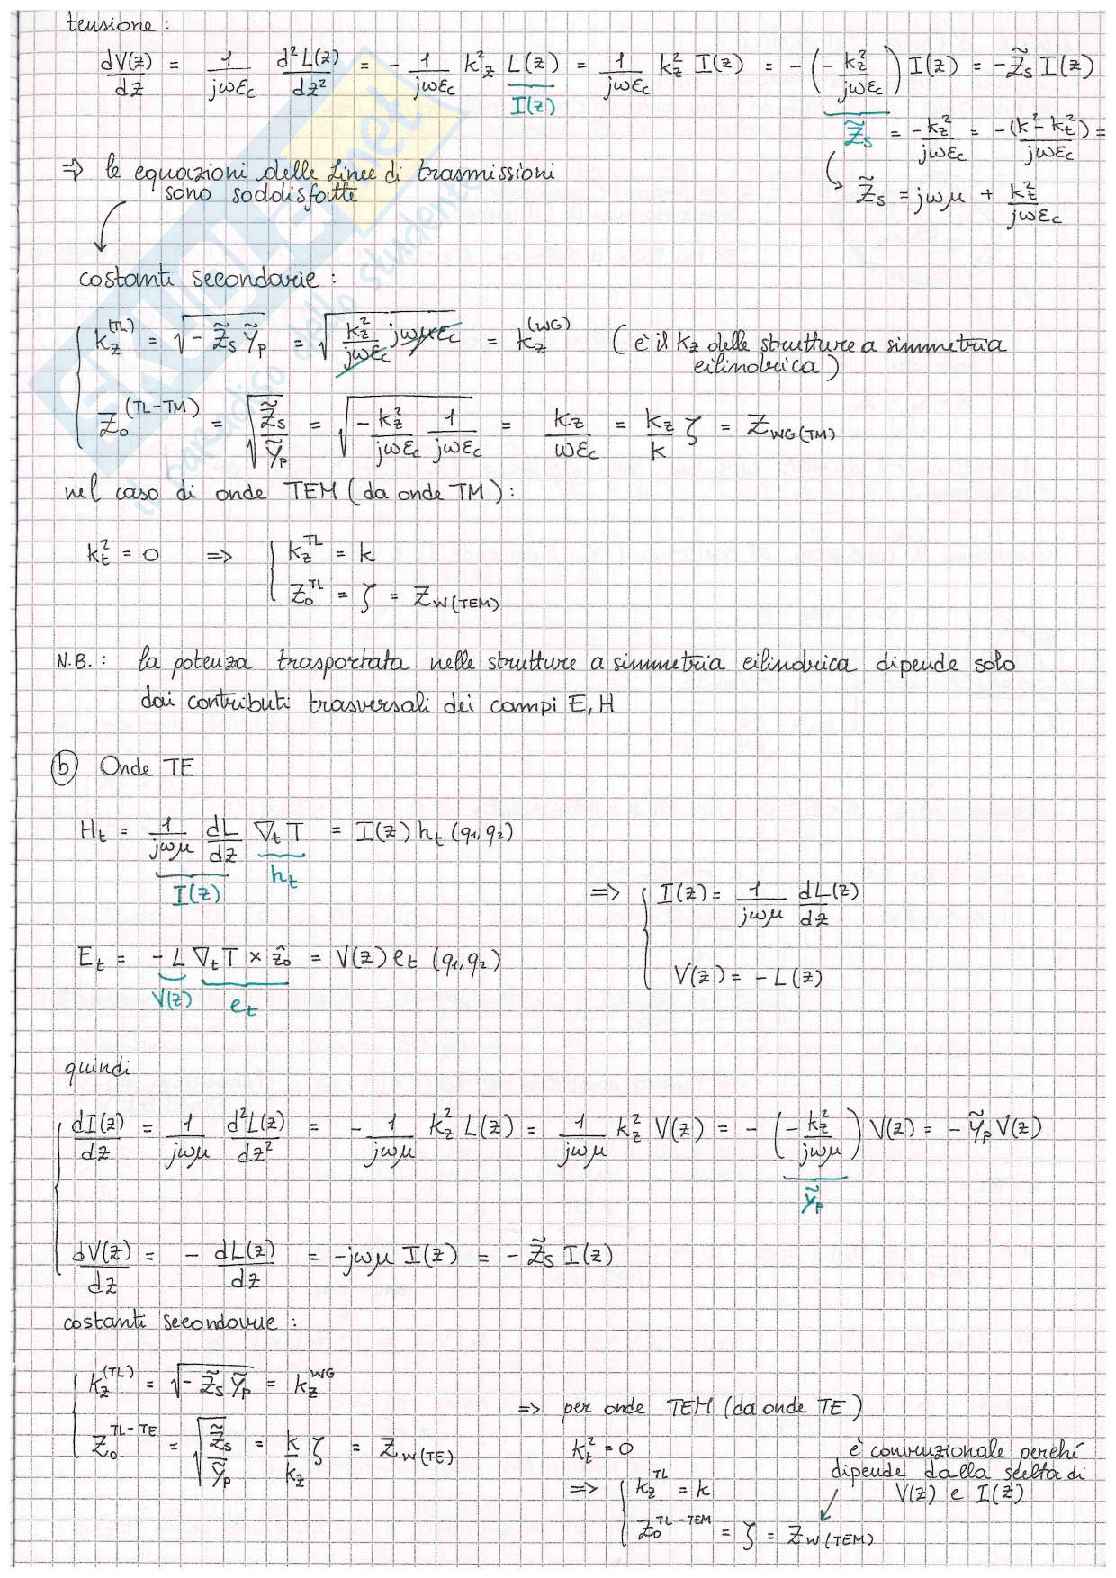 tensione:
dV(z)/dz = 1/jωεc d²L(z)/dz² = - 1/jωεc k²z L(z) = 1/jωεc kz² I(z) = -(-kz²/jωεc) I(z) = -Z̃s I(z)
I(z)
Z̃s = -kz²/jωεc = -(k²-kt²)/jωεc =
Z̃s = jωμ + kt²/jωεc
⇒ le equazioni delle Linee di trasmissioni
sono soddisfatte
costanti secondarie:
kz^(TL) = √(-Z̃s Ỹp) = √(kz²/jωεc jωεc) = kz^(WG) (è il kz delle strutture a simmetria
cilindrica)
Z₀^(TL-TM) = √(Z̃s/Ỹp) = √(-kz²/jωεc 1/jωεc) = kz/ωεc = kz/k ζ = ZWG(TM)
nel caso di onde TEM (da onde TM):
kt² = 0 ⇒ kz^TL = k
Z₀^TL = ζ = ZW(TEM)
N.B.: la potenza trasportata nelle strutture a simmetria cilindrica dipende solo
dai contributi trasversali dei campi E, H
(b) Onde TE
Ht = 1/jωμ dL/dz ∇t T = I(z) ht (q1,q2)
I(z) ht
⇒ I(z) = 1/jωμ dL(z)/dz
Et = -L ∇t T × ẑ₀ = V(z) et (q1,q2)
V(z) et
V(z) = -L(z)
quindi
dI(z)/dz = 1/jωμ d²L(z)/dz² = - 1/jωμ kz² L(z) = 1/jωμ kz² V(z) = -(-kz²/jωμ) V(z) = -Ỹp V(z)
Ỹp
dV(z)/dz = - dL(z)/dz = -jωμ I(z) = -Z̃s I(z)
costanti secondarie:
kz^(TL) = √(-Z̃s Ỹp) = kz^WG
Z₀^TL-TE = √(Z̃s/Ỹp) = k/kz ζ = ZW(TE)
⇒ per onde TEM (da onde TE)
kt² = 0
⇒ kz^TL = k
Z₀^TL-TEM = ζ = ZW(TEM)
è convenzionale perché
dipende dalla scelta di
V(z) e I(z)